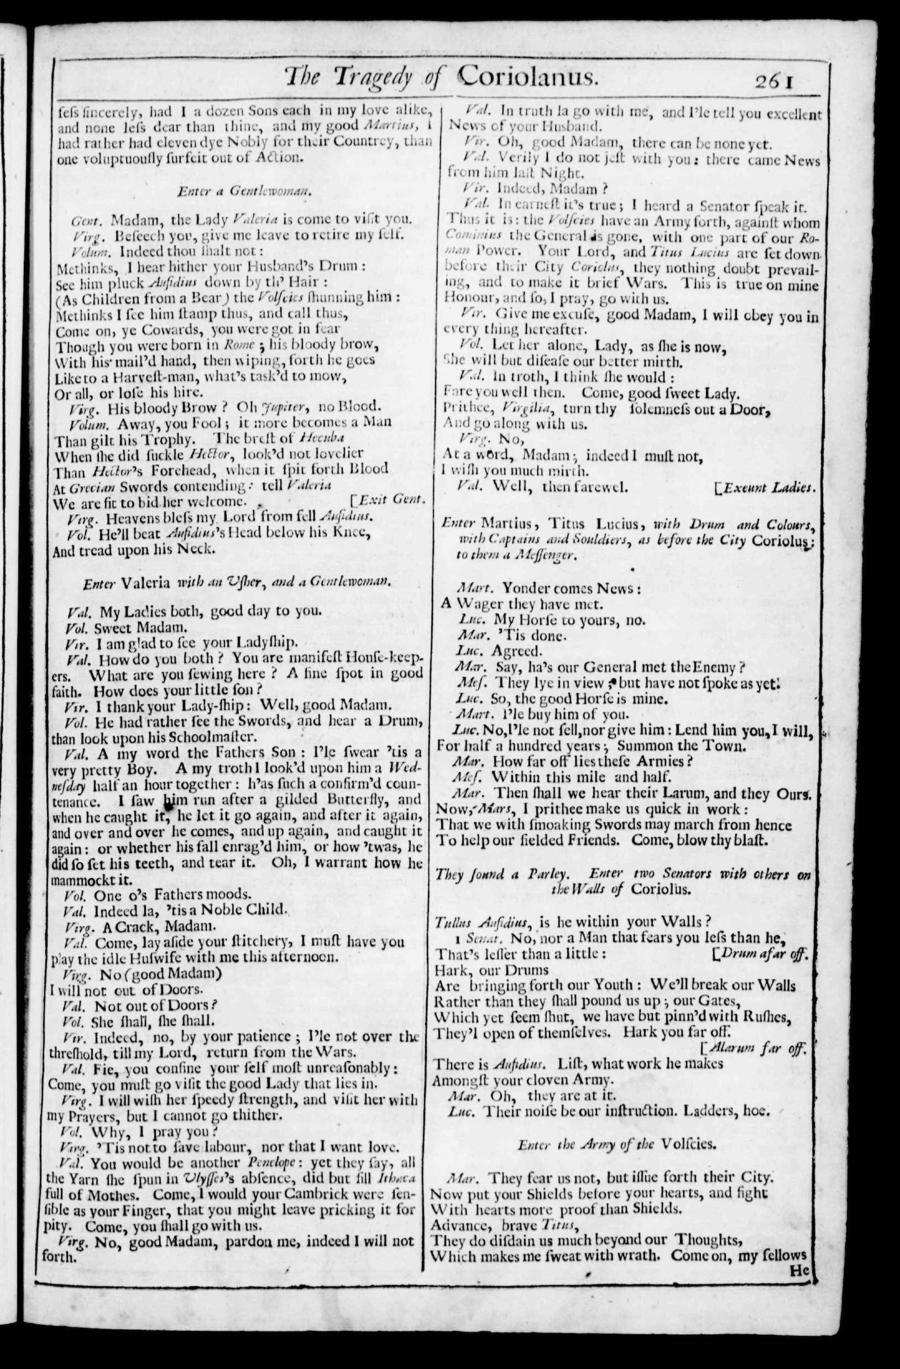 The Tragedy of Coriolanus. 261
feſs ſincerely, had I a dozen Sons each in my love alike,
and none leſs dear than thine, and my good Martius, I
had rather had eleven dye Nobly for their Countrey, than
one voluptuouſly ſurfeit out of Action.
Enter a Gentlewoman.
Gent. Madam, the Lady Valeria is come to viſit you.
Virg. Beſeech you, give me leave to retire my ſelf.
Volum. Indeed thou ſhalt not :
Methinks, I hear hither your Husband's Drum :
See him pluck Aufidius down by th' Hair :
(As Children from a Bear) the Volſcies ſhunning him :
Methinks I ſee him ſtamp thus, and call thus,
Come on, ye Cowards, you were got in fear
Though you were born in Rome ; his bloody brow,
With his mail'd hand, then wiping, forth he goes
Like to a Harveſt-man, what's task'd to mow,
Or all, or loſe his hire.
Virg. His bloody Brow ? Oh Jupiter, no Blood.
Volum. Away, you Fool ; it more becomes a Man
Than gilt his Trophy. The breſt of Hecuba
When ſhe did ſuckle Hector, look'd not lovelier
Than Hector's Forehead, when it ſpit forth Blood
At Grecian Swords contending : tell Valeria
We are fit to bid her welcome. [Exit Gent.
Virg. Heavens bleſs my Lord from fell Aufidius.
Vol. He'll beat Aufidius's Head below his Knee,
And tread upon his Neck.
Enter Valeria with an Uſher, and a Gentlewoman.
Val. My Ladies both, good day to you.
Vol. Sweet Madam.
Vir. I am glad to ſee your Ladyſhip.
Val. How do you both ? You are manifeſt Houſe-keep-
ers. What are you ſewing here ? A fine ſpot in good
faith. How does your little ſon ?
Vir. I thank your Lady-ſhip : Well, good Madam.
Vol. He had rather ſee the Swords, and hear a Drum,
than look upon his Schoolmaſter.
Val. A my word the Fathers Son : I'le ſwear 'tis a
very pretty Boy. A my troth I look'd upon him a Wed-
neſday half an hour together : h'as ſuch a confirm'd coun-
tenance. I ſaw him run after a gilded Butterfly, and
when he caught it, he let it go again, and after it again,
and over and over he comes, and up again, and caught it
again : or whether his fall enrag'd him, or how 'twas, he
did ſo ſet his teeth, and tear it. Oh, I warrant how he
mammockt it.
Vol. One o's Fathers moods.
Val. Indeed la, 'tis a Noble Child.
Virg. A Crack, Madam.
Val. Come, lay aſide your ſtitchery, I muſt have you
play the idle Huſwife with me this afternoon.
Virg. No (good Madam)
I will not out of Doors.
Val. Not out of Doors ?
Vol. She ſhall, ſhe ſhall.
Vir. Indeed, no, by your patience ; I'le not over the
threſhold, till my Lord, return from the Wars.
Val. Fie, you confine your ſelf moſt unreaſonably :
Come, you muſt go viſit the good Lady that lies in.
Virg. I will wiſh her ſpeedy ſtrength, and viſit her with
my Prayers, but I cannot go thither.
Vol. Why, I pray you ?
Virg. 'Tis not to ſave labour, nor that I want love.
Val. You would be another Penelope : yet they ſay, all
the Yarn ſhe ſpun in Ulyſſes's abſence, did but fill Ithaca
full of Mothes. Come, I would your Cambrick were ſen-
ſible as your Finger, that you might leave pricking it for
pity. Come, you ſhall go with us.
Virg. No, good Madam, pardon me, indeed I will not
forth.
Val. In truth la go with me, and I'le tell you excellent
News of your Husband.
Vir. Oh, good Madam, there can be none yet.
Val. Verily I do not jeſt with you : there came News
from him laſt Night.
Vir. Indeed, Madam ?
Val. In earneſt it's true ; I heard a Senator ſpeak it.
Thus it is : the Volſcies have an Army forth, againſt whom
Cominius the General is gone, with one part of our Ro-
man Power. Your Lord, and Titus Lucius are ſet down
before their City Coriolus, they nothing doubt prevail-
ing, and to make it brief Wars. This is true on mine
Honour, and ſo, I pray, go with us.
Vir. Give me excuſe, good Madam, I will obey you in
every thing hereafter.
Vol. Let her alone, Lady, as ſhe is now,
She will but diſeaſe our better mirth.
Val. In troth, I think ſhe would :
Fare you well then. Come, good ſweet Lady.
Prithee, Virgilia, turn thy ſolemneſs out a Door,
And go along with us.
Virg. No,
At a word, Madam ; indeed I muſt not,
I wiſh you much mirth.
Val. Well, then farewel. [Exeunt Ladies.
Enter Martius, Titus Lucius, with Drum and Colours,
with Captains and Souldiers, as before the City Coriolus ;
to them a Meſſenger.
Mart. Yonder comes News :
A Wager they have met.
Luc. My Horſe to yours, no.
Mar. 'Tis done.
Luc. Agreed.
Mar. Say, ha's our General met the Enemy ?
Meſ. They lye in view ; but have not ſpoke as yet.
Luc. So, the good Horſe is mine.
Mart. I'le buy him of you.
Luc. No, I'le not ſell, nor give him : Lend him you, I will,
For half a hundred years ; Summon the Town.
Mar. How far off lies theſe Armies ?
Meſ. Within this mile and half.
Mar. Then ſhall we hear their Larum, and they Ours.
Now, Mars, I prithee make us quick in work :
That we with ſmoaking Swords may march from hence
To help our fielded Friends. Come, blow thy blaſt.
They ſound a Parley. Enter two Senators with others on
the Walls of Coriolus.
Tullus Aufidius, is he within your Walls ?
1 Senat. No, nor a Man that fears you leſs than he,
That's leſſer than a little : [Drum afar off.
Hark, our Drums
Are bringing forth our Youth : We'll break our Walls
Rather than they ſhall pound us up ; our Gates,
Which yet ſeem ſhut, we have but pinn'd with Ruſhes,
They'l open of themſelves. Hark you far off.
[Alarum far off.
There is Aufidius. Liſt, what work he makes
Amongſt your cloven Army.
Mar. Oh, they are at it.
Luc. Their noiſe be our inſtruction. Ladders, hoe.
Enter the Army of the Volſcies.
Mar. They fear us not, but iſſue forth their City.
Now put your Shields before your hearts, and fight
With hearts more proof than Shields.
Advance, brave Titus,
They do diſdain us much beyond our Thoughts,
Which makes me ſweat with wrath. Come on, my fellows
He